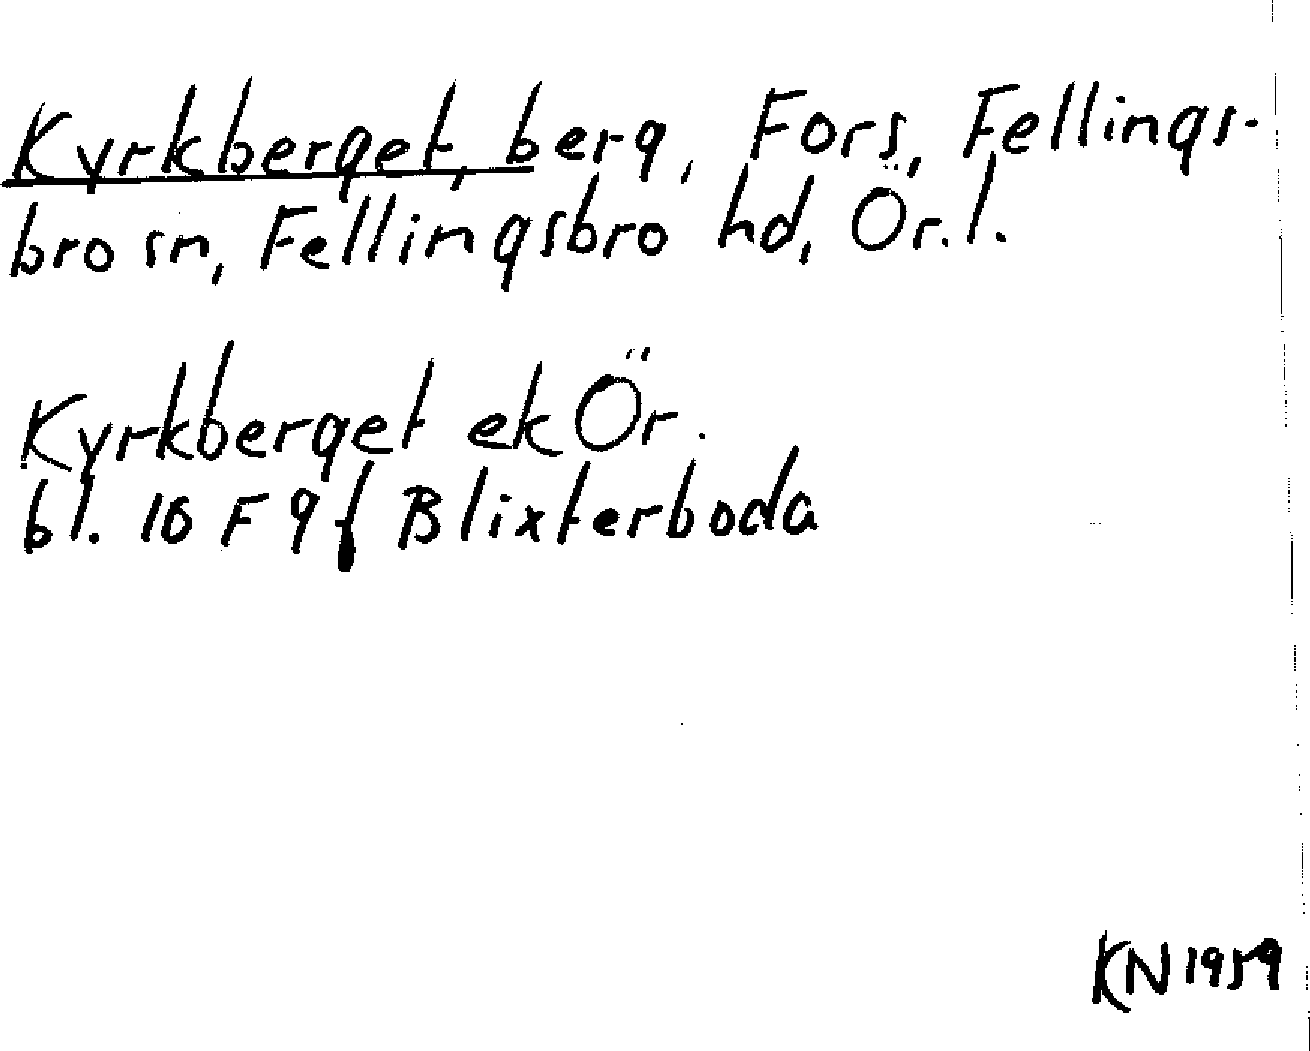 Kyrkberget, berg, Fors, Fellings-
bro sn, Fellingsbro hd, Ör. l.
Kyrkberget ek Ör.
bl. 10 F 9 f Blixterboda
KN 1959